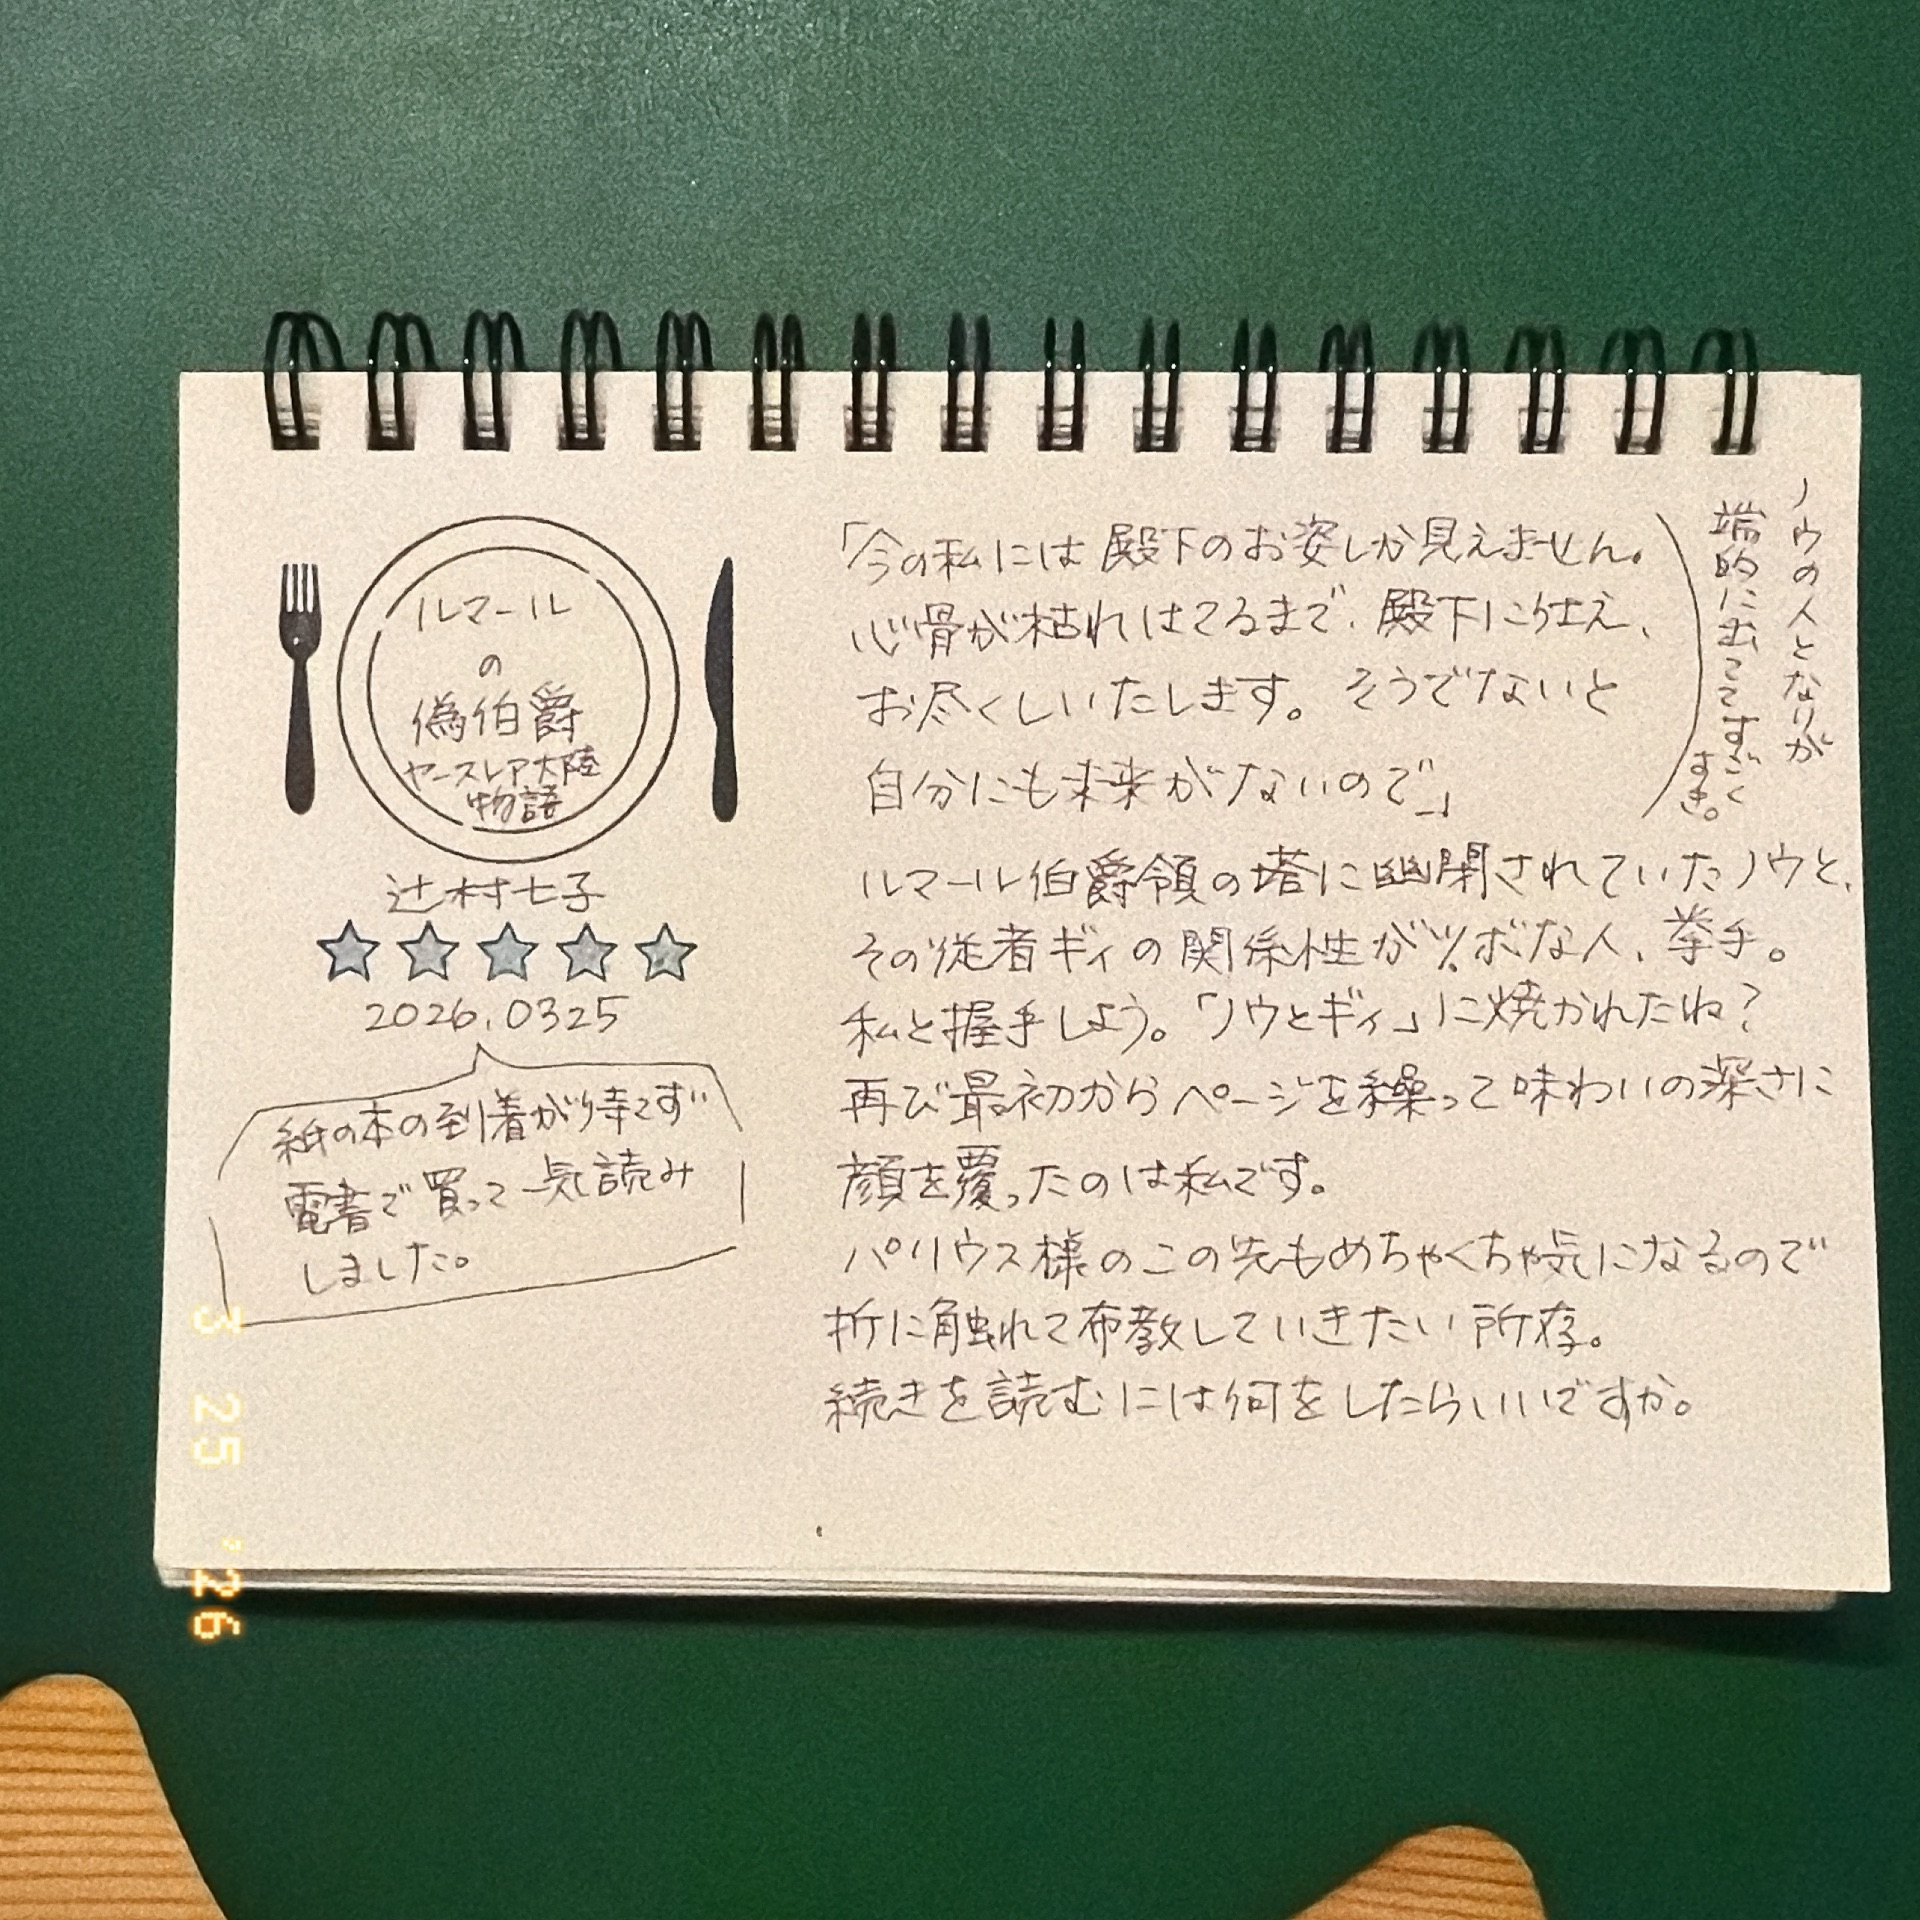 ルマール
の
偽伯爵
ヤースレア大陸
物語
辻村七子
2026.0325
紙の本の到着が待てず
電書で買って一気読み
しました。
「今の私には殿下のお姿しか見えません。
心骨が枯れはてるまで、殿下に仕え、
お尽くしいたします。そうでないと
自分にも未来がないので」
ノウの人となりが
端的に出ててすごく
すき。
ルマール伯爵領の塔に幽閉されていたノウと、
その従者ギィの関係性がツボな人、挙手。
私と握手しよう。「ノウとギィ」に焼かれたね?
再び最初からページを繰って味わいの深さに
顔を覆ったのは私です。
パリウス様のこの先もめちゃくちゃ気になるので
折に触れて布教していきたい所存。
続きを読むには何をしたらいいですか。
3 25 '26